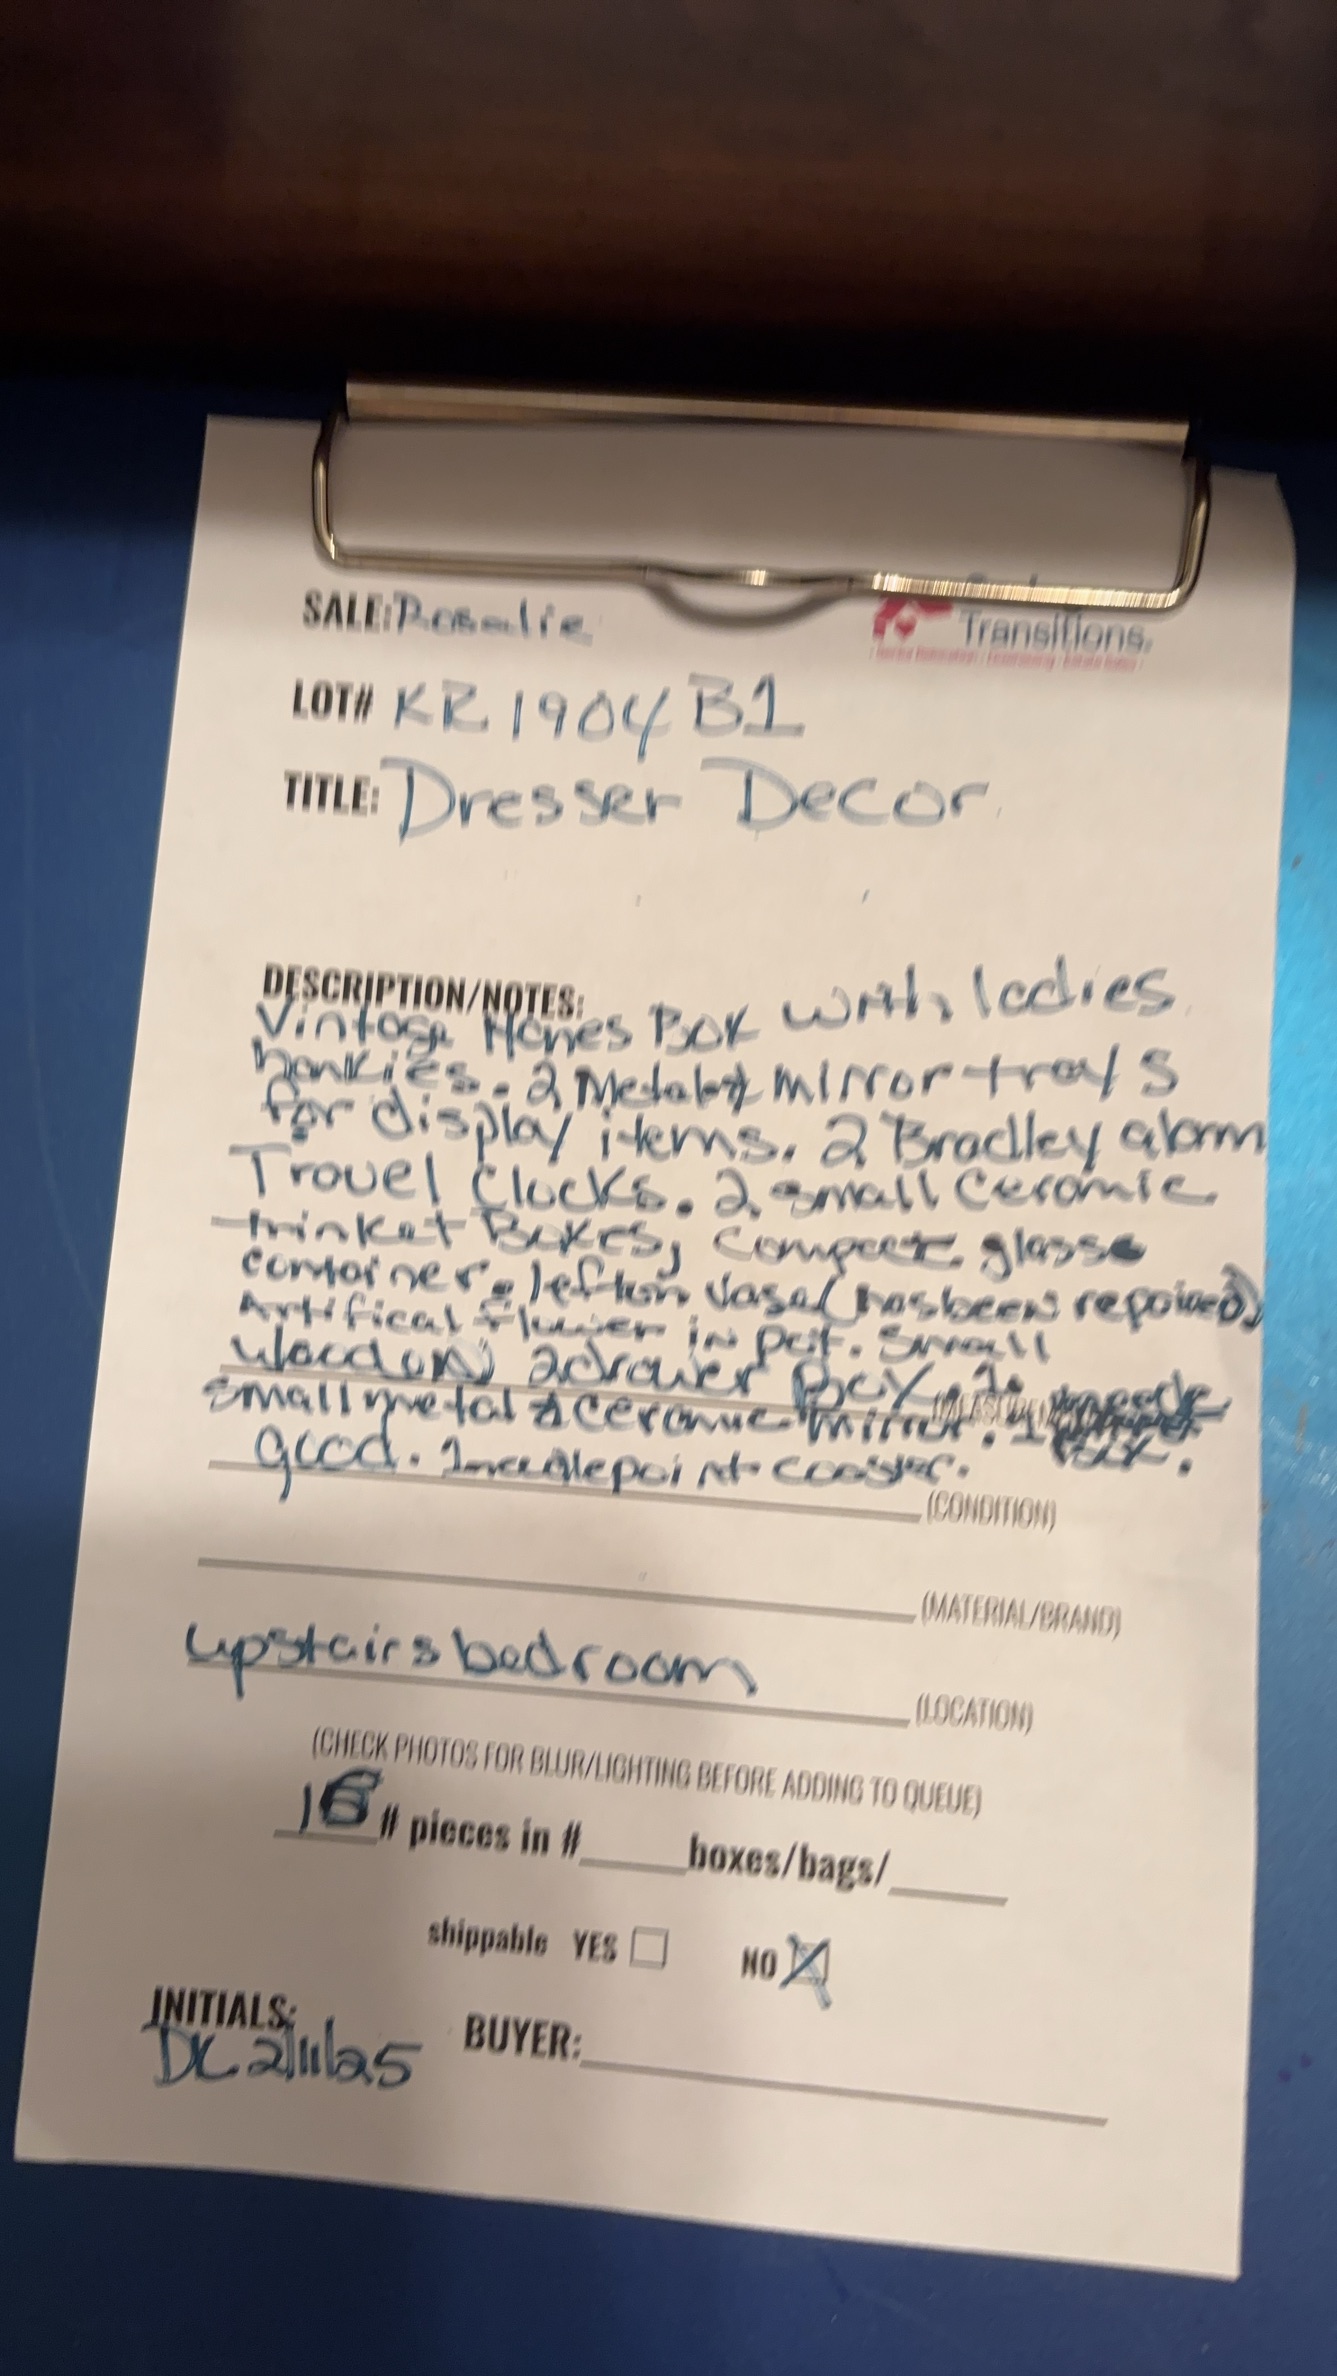 SALE: Rosalie
Transitions.
LOT# KR1904B1
TITLE: Dresser Decor
DESCRIPTION/NOTES:
Vintage Hanes Box with ladies
hankies. 2 Metal & mirror trays
for display items. 2 Bradley alarm
Travel Clocks. 2 small Ceramic
trinket Boxes, compact. glass
container. lefton vase (has been repaired)
Artifical flower in pot. small
wooden 2 drawer Box. 1
small metal & ceramic mirror. 1
good. 1 needlepoint coaster.
(CONDITION)
(MATERIAL/BRAND)
upstairs bedroom
(LOCATION)
(CHECK PHOTOS FOR BLUR/LIGHTING BEFORE ADDING TO QUEUE)
16 # pieces in # boxes/bags/
shippable YES NO
INITIALS: BUYER:
DC 2/11/25